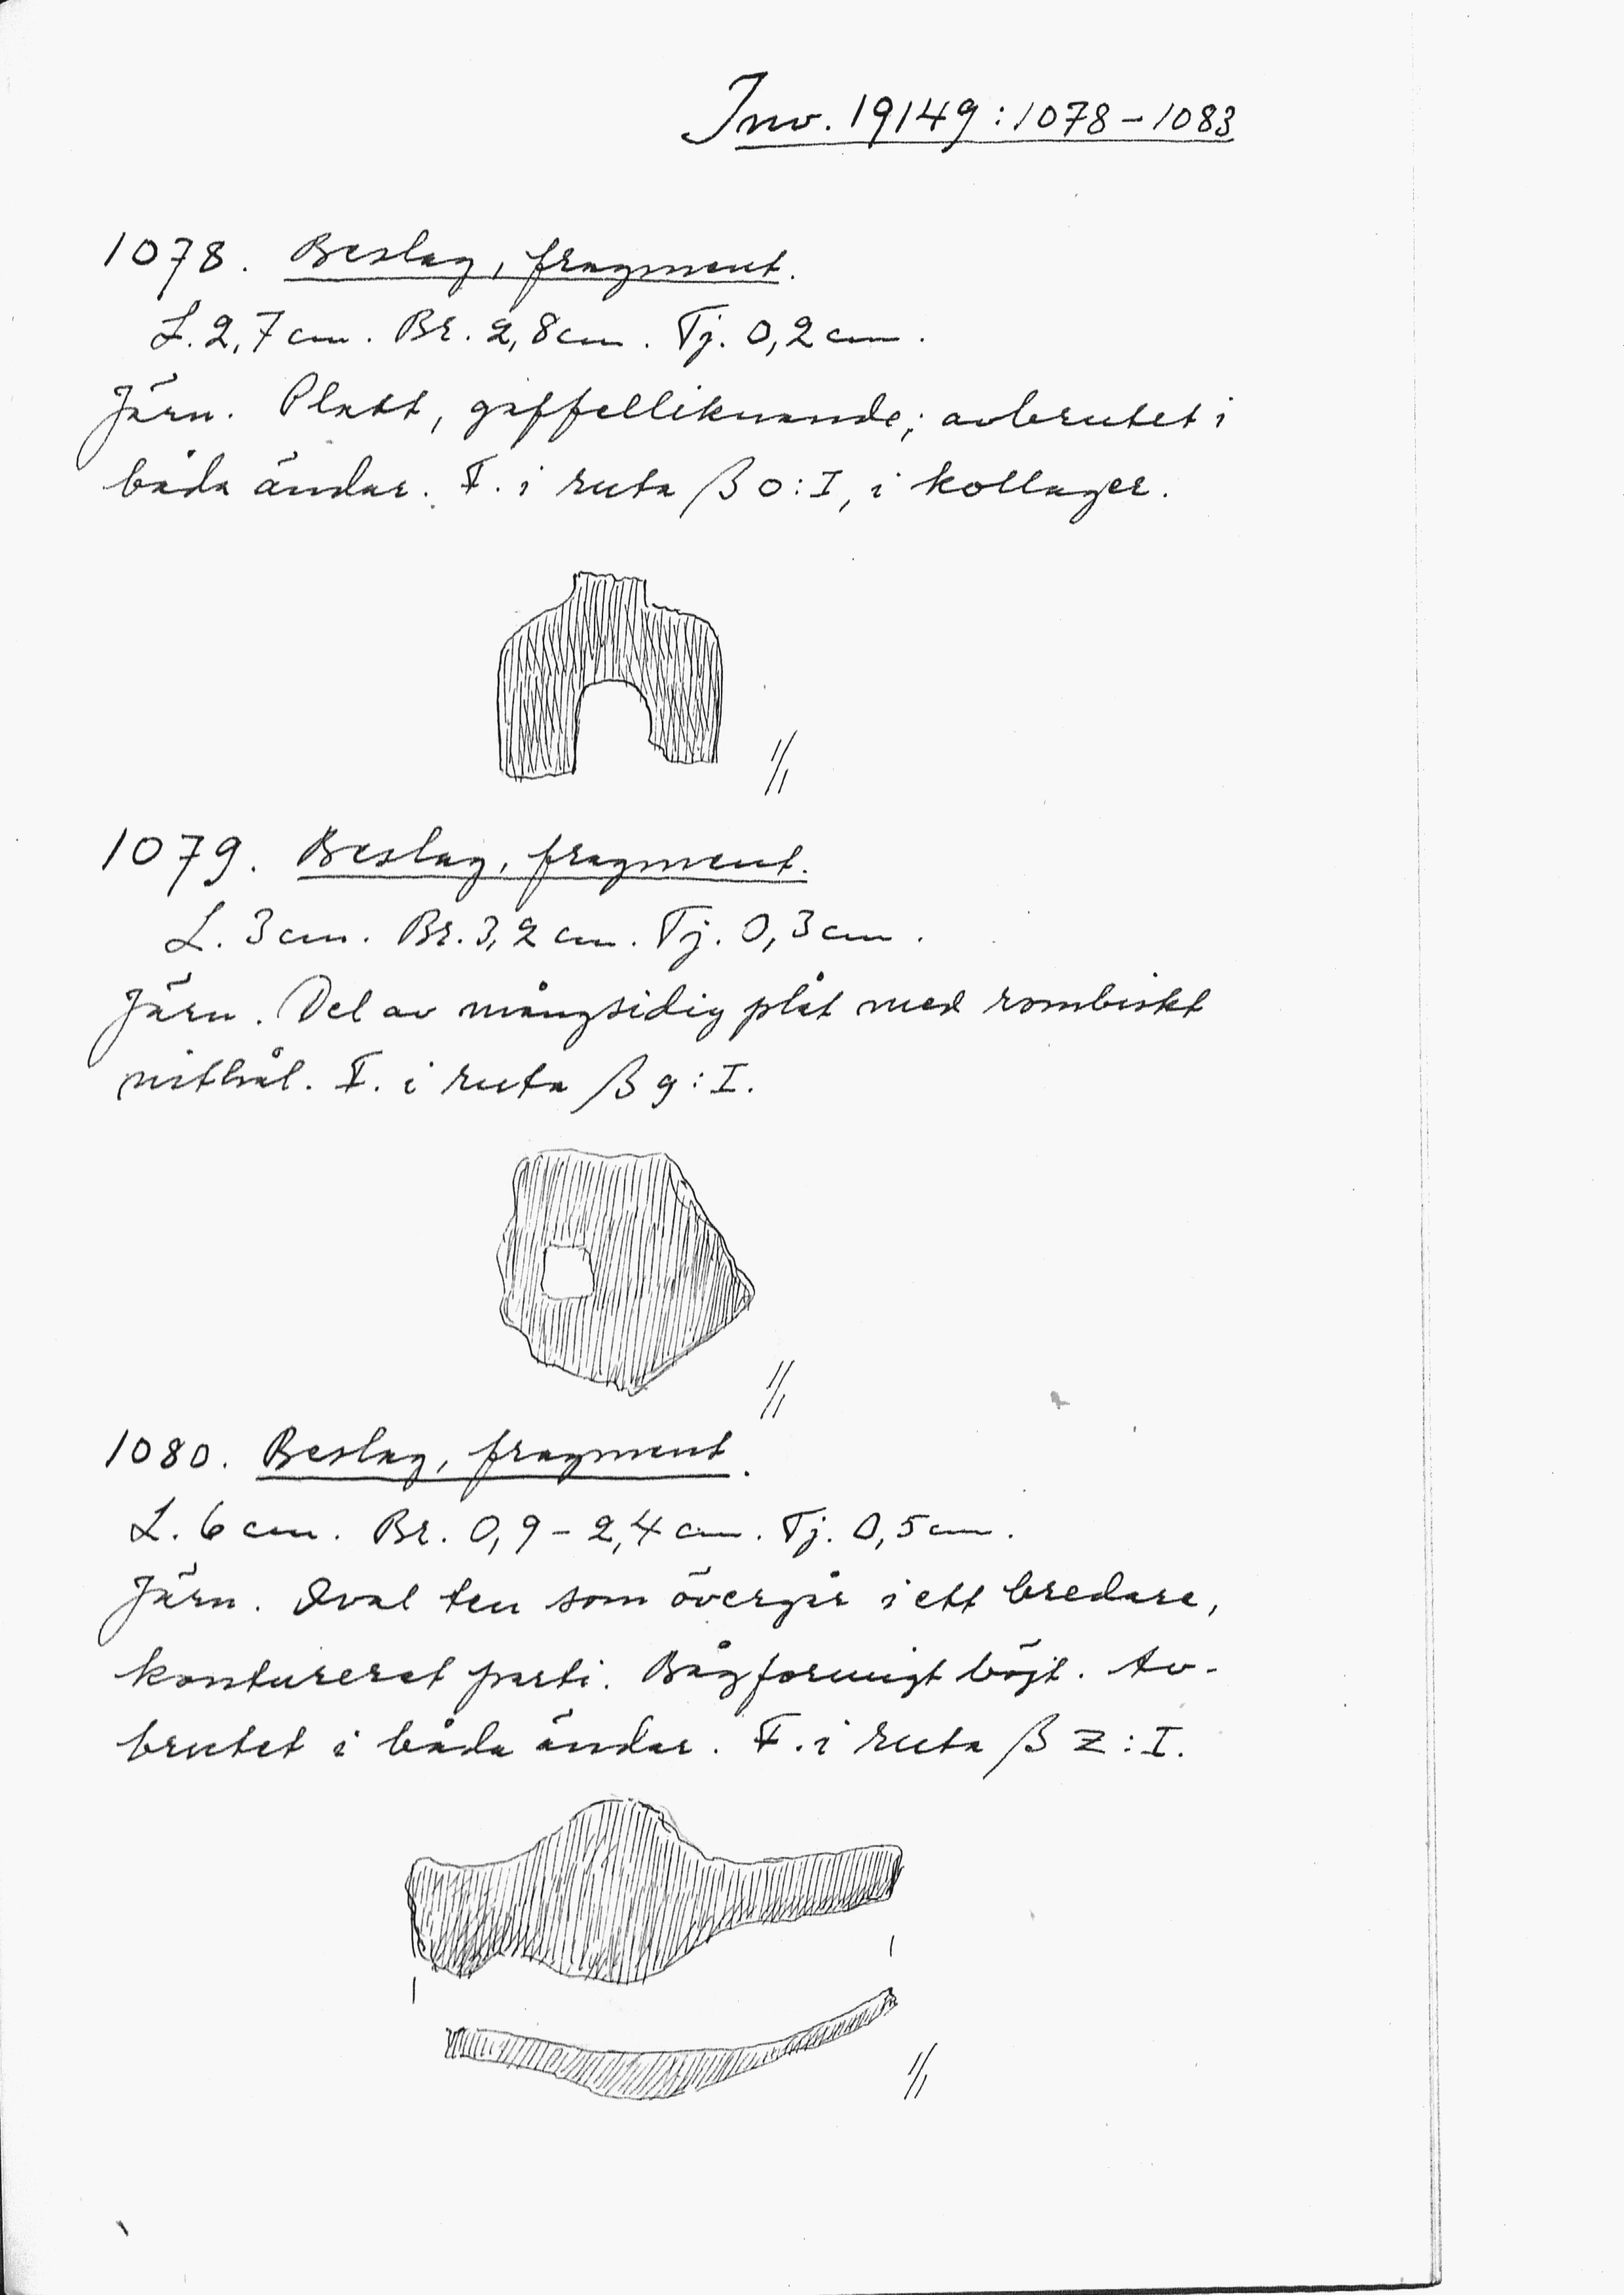 Inv. 19149:1078-1083
1078. Beslag, fragment.
L. 2,7 cm. Br. 2,8 cm. Tj. 0,2 cm.
Järn. Platt, gaffelliknande; avbrutet i
båda ändar. F. i ruta β o:I, i kollager.
1/1
1079. Beslag, fragment.
L. 3 cm. Br. 3,2 cm. Tj. 0,3 cm.
Järn. Del av mångsidig plåt med rombiskt
nithål. F. i ruta β g:I.
1/1
1080. Beslag, fragment.
L. 6 cm. Br. 0,9-2,4 cm. Tj. 0,5 cm.
Järn. Oval ten som övergår i ett bredare,
kontureret parti. Bågformigt böjt. Av-
brutet i båda ändar. F. i ruta β z:I.
1/1